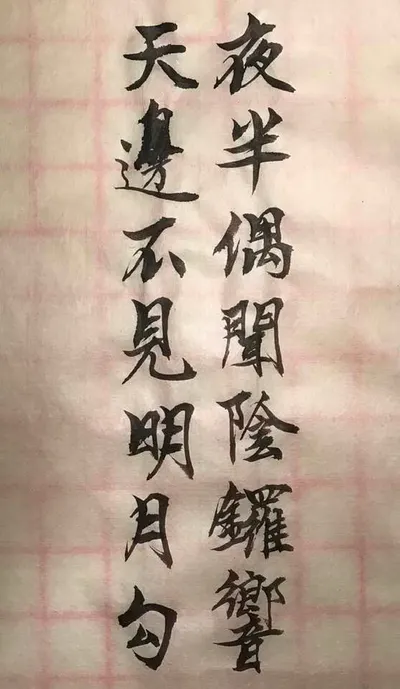 夜半偶聞陰鑼響
天邊不見明月勾